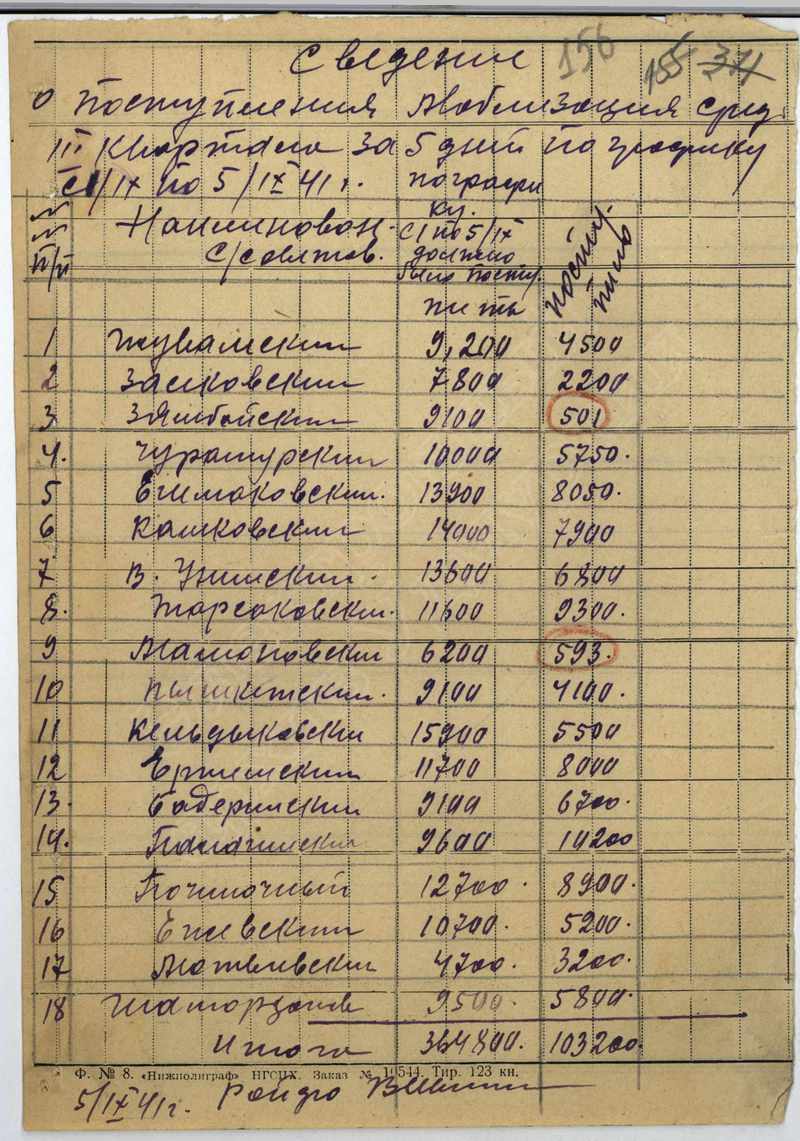 156 155 371
Сведение
о поступления Мобилизация сред.
III Квартала за 5 дней по графику
с 1/IX по 5/IX 41 г.
№№ п/п
Наименован. с/советов.
по графику. с 1 по 5/IX должно было поступить
поступило
1 Жувамский 9,200 4500
2 Засековский 7800 2200
3 Зямбайский 9100 501
4. Чурашурский 10000 5750.
5 Ешмаковский. 13900 8050.
6 Качковский 14000 7900
7 В. Унинский. 13600 6800
8. Тарсаковский. 11600 9300.
9 Мамоновский 6200 593.
10 Пышкетский. 9100 4100.
11 Кельдыковский 15900 5500
12 Ежевский 11700 8000
13. Бадеринский 9100 6700.
14. 9600 10200
15 Починочный 12700. 8900.
16 Ежевский 10700. 5200.
17 Мотьевский 4700. 3200.
18 9500. 5800.
Итого 364800. 103200.
Ф. № 8. «Нижполиграф» НГСНХ. Заказ № 10544. Тир. 123 кн.
5/IX 41 г.